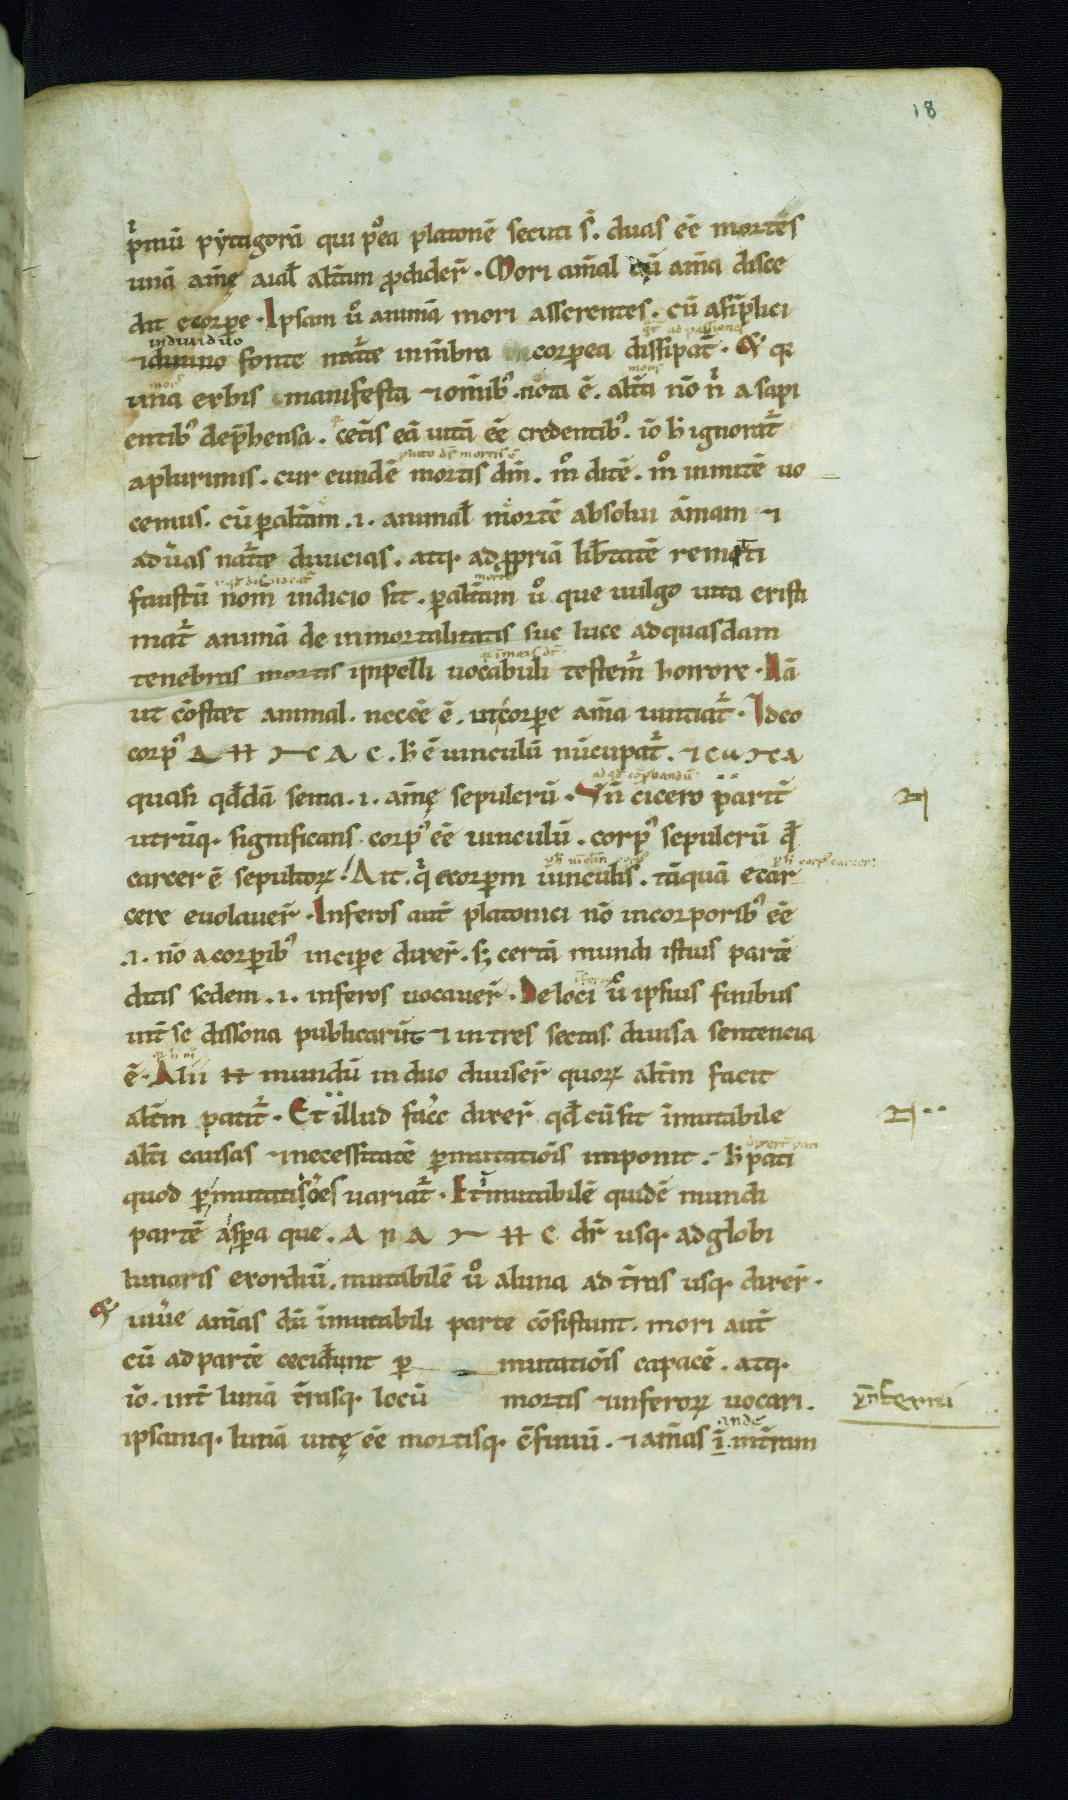 18
p̾mū pytagorā qui p̊ea platonē secuti s̄. duas eē mortēs
unā am̄ę aial̄ alt̄am ꝓdider̄. Mori am̄al cū am̄a disce
dit ecorꝑe. Ipsam ů animā mori asserentes. cū asīplici
indiuiduo
⁊diuino fonte nat̾e inm̄bra corporea dissipat̾. Et q;
una exbis manifesta ⁊omīb; nota ē. alt̄a nō n̄ asapi
entib; dep̄hensa. cet̄is eā uitā eē credentib;. iō h̄ ignorat̾
aplurimis. cur eundē mortis dm̄. m̊ ditē. m̊ inmitē uo
pluto ds̄ mortis ē
cemus. cū ꝑalt̄am .i. animal̄ mortē absolui am̄am ⁊
adu̾as nat̾e diuicias. atq; adꝓpriā lib̄tatē remitti
faustū nom̄ indicio sit. ꝑalt̄am ů que uulgo uita exista
mat̾ animā de inmortalitatis sue luce adquasdam
tenebras mortis inpelli uocabuli testem̾ horrore. Nā
ut cōstet animal. neceē ē. utcorꝑe am̄a uinciat̾. Ideo
corp; Δ H M A C. h̄ ē uinculū nūcupat̾. ⁊ C H M A
quasi qd̄dā sema .i. am̄ę sepulcrū. Vn̄ cicero parit̄
utrūq; significans corp; eē uinculū. corp; sepulcrū qd̄
carcer ē sepultoꝝ. Ait. q̾ excorꝑm uinculis. tāquā ecar
cere euolauer̄. Inferos aut̄ platonici nō incorporib; eē
.i. nō acorꝑib; incipe dixer̄. s; certā mundi istius partē
ditis sedem .i. inferos uocauer̄. Deloci ů ipsius finibus
int̄ se dissona publicarūt ⁊ in tres sectas diuisa sentencia
ē. Alii H mundū induo diuiser̄ quoꝝ alt̄m facit
alt̄m patit̾. Et illud face̾ dixer̄ qd̄ cū sit īmutabile
alt̄i causas ⁊necessitatē ꝑmutatiōis imponit. h̄ pati
quod ꝑmutatiōes uariat̾. Et īmutabilē quidē mundi
partē aspa que. A П A M H C dr̄ usq; adglobi
lunaris exordiū. mutabilē ů aluna ad t̄ras usq; dixer̄.
uiue̾ am̄as dū īmutabili parte cōsistunt. mori aut̄
cū adpartē ceciderunt ꝑmutatiōis capacē. atq;
iō. int̄ lunā t̄rasq; locū mortis ⁊inferoꝝ uocari.
ipsamq; lunā uitę eē mortisq; cōfiniū. ⁊am̄as ī. int̄ram